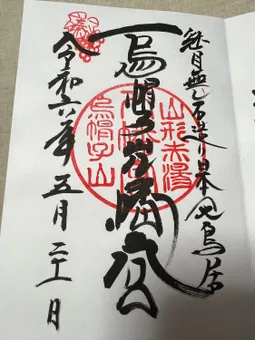 継目無石造り日本一鳥居
烏帽子山八幡宮
山形赤湯
烏帽子山
令和六年五月二十一日